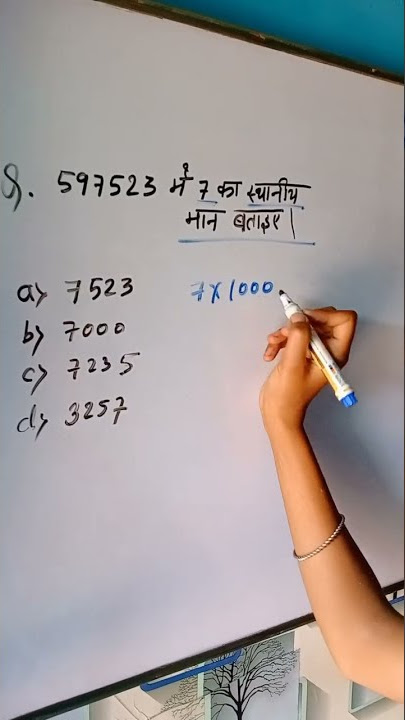 Q. 597523 में 7 का स्थानीय
मान बताइए|
a> 7523
b> 7000
c> 7235
d> 3257
7x1000